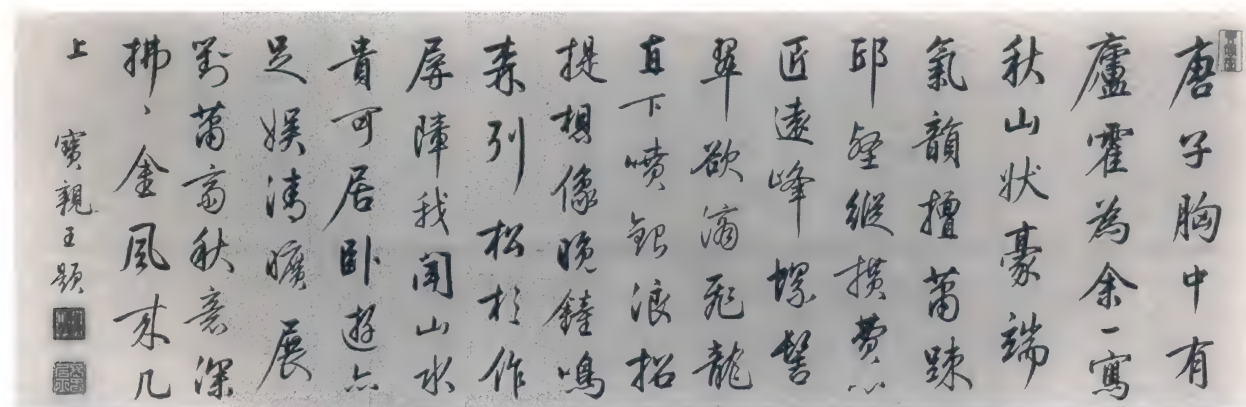 唐子胸中有
廬霍為余一寫
秋山狀豪端
氣韻擅蕭踈
邱壑縱撗費心
匠遠峰螺髻
翠欲滴飛龍
直下噴銀浪招
提想像晚鐘鳴
森列松杉作
屏障我聞山水
貴可居臥遊亦
足娛清曠展
對蕭齋秋意深
拂〻金風來几
上 寶親王題